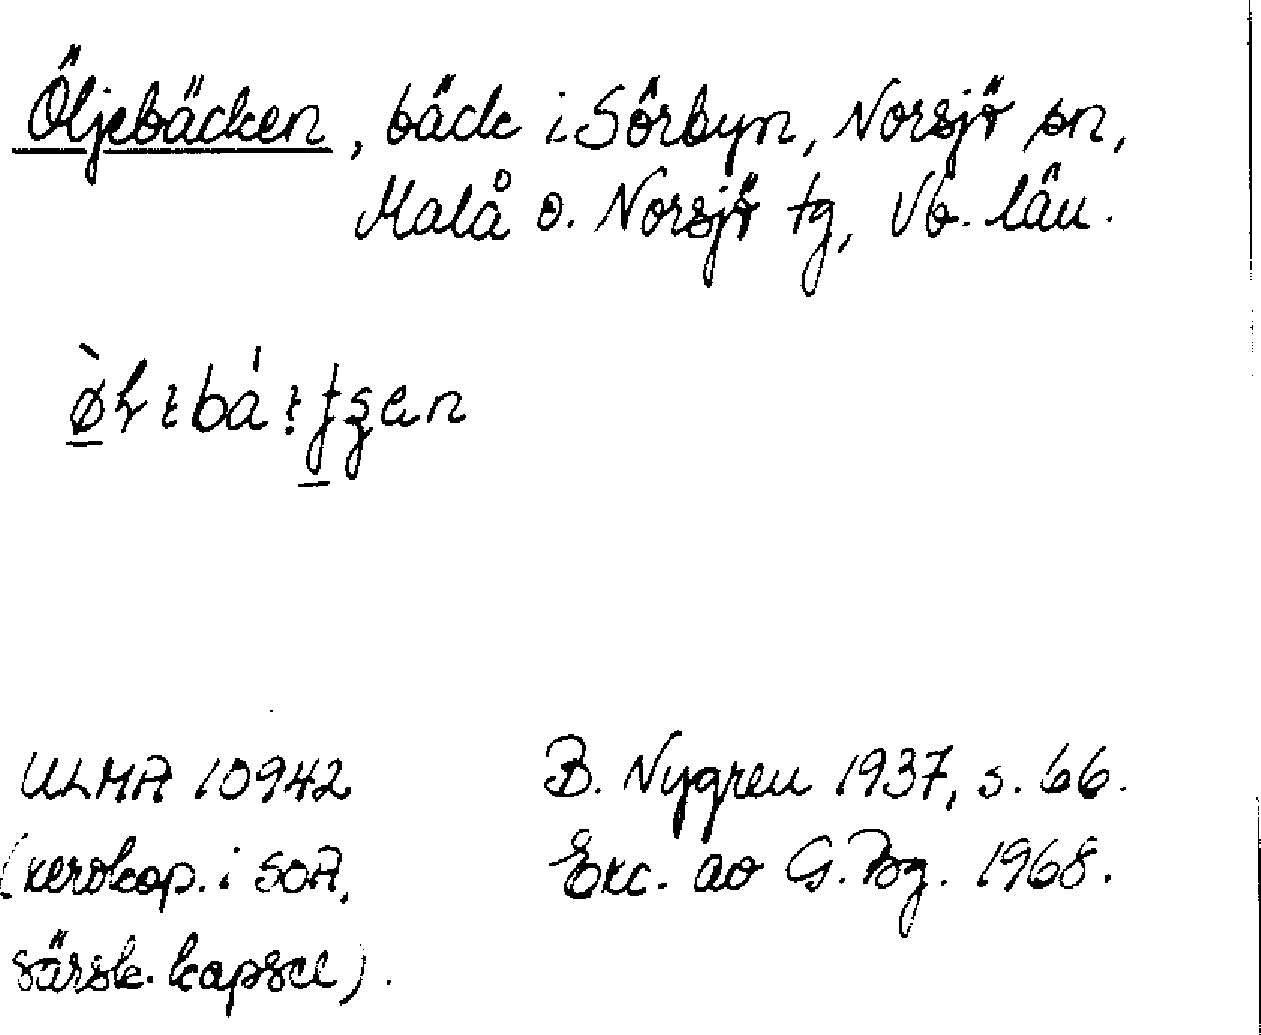 Öljebäcken, bäck i Sörbyn, Norsjö sn,
Malå o. Norsjö tg, Vb. län.
ULMA 10942
(xerokop. i SOA,
särsk. kapsel).
B. Nygren 1937, s. 66.
Exc. av G. Bg. 1968.